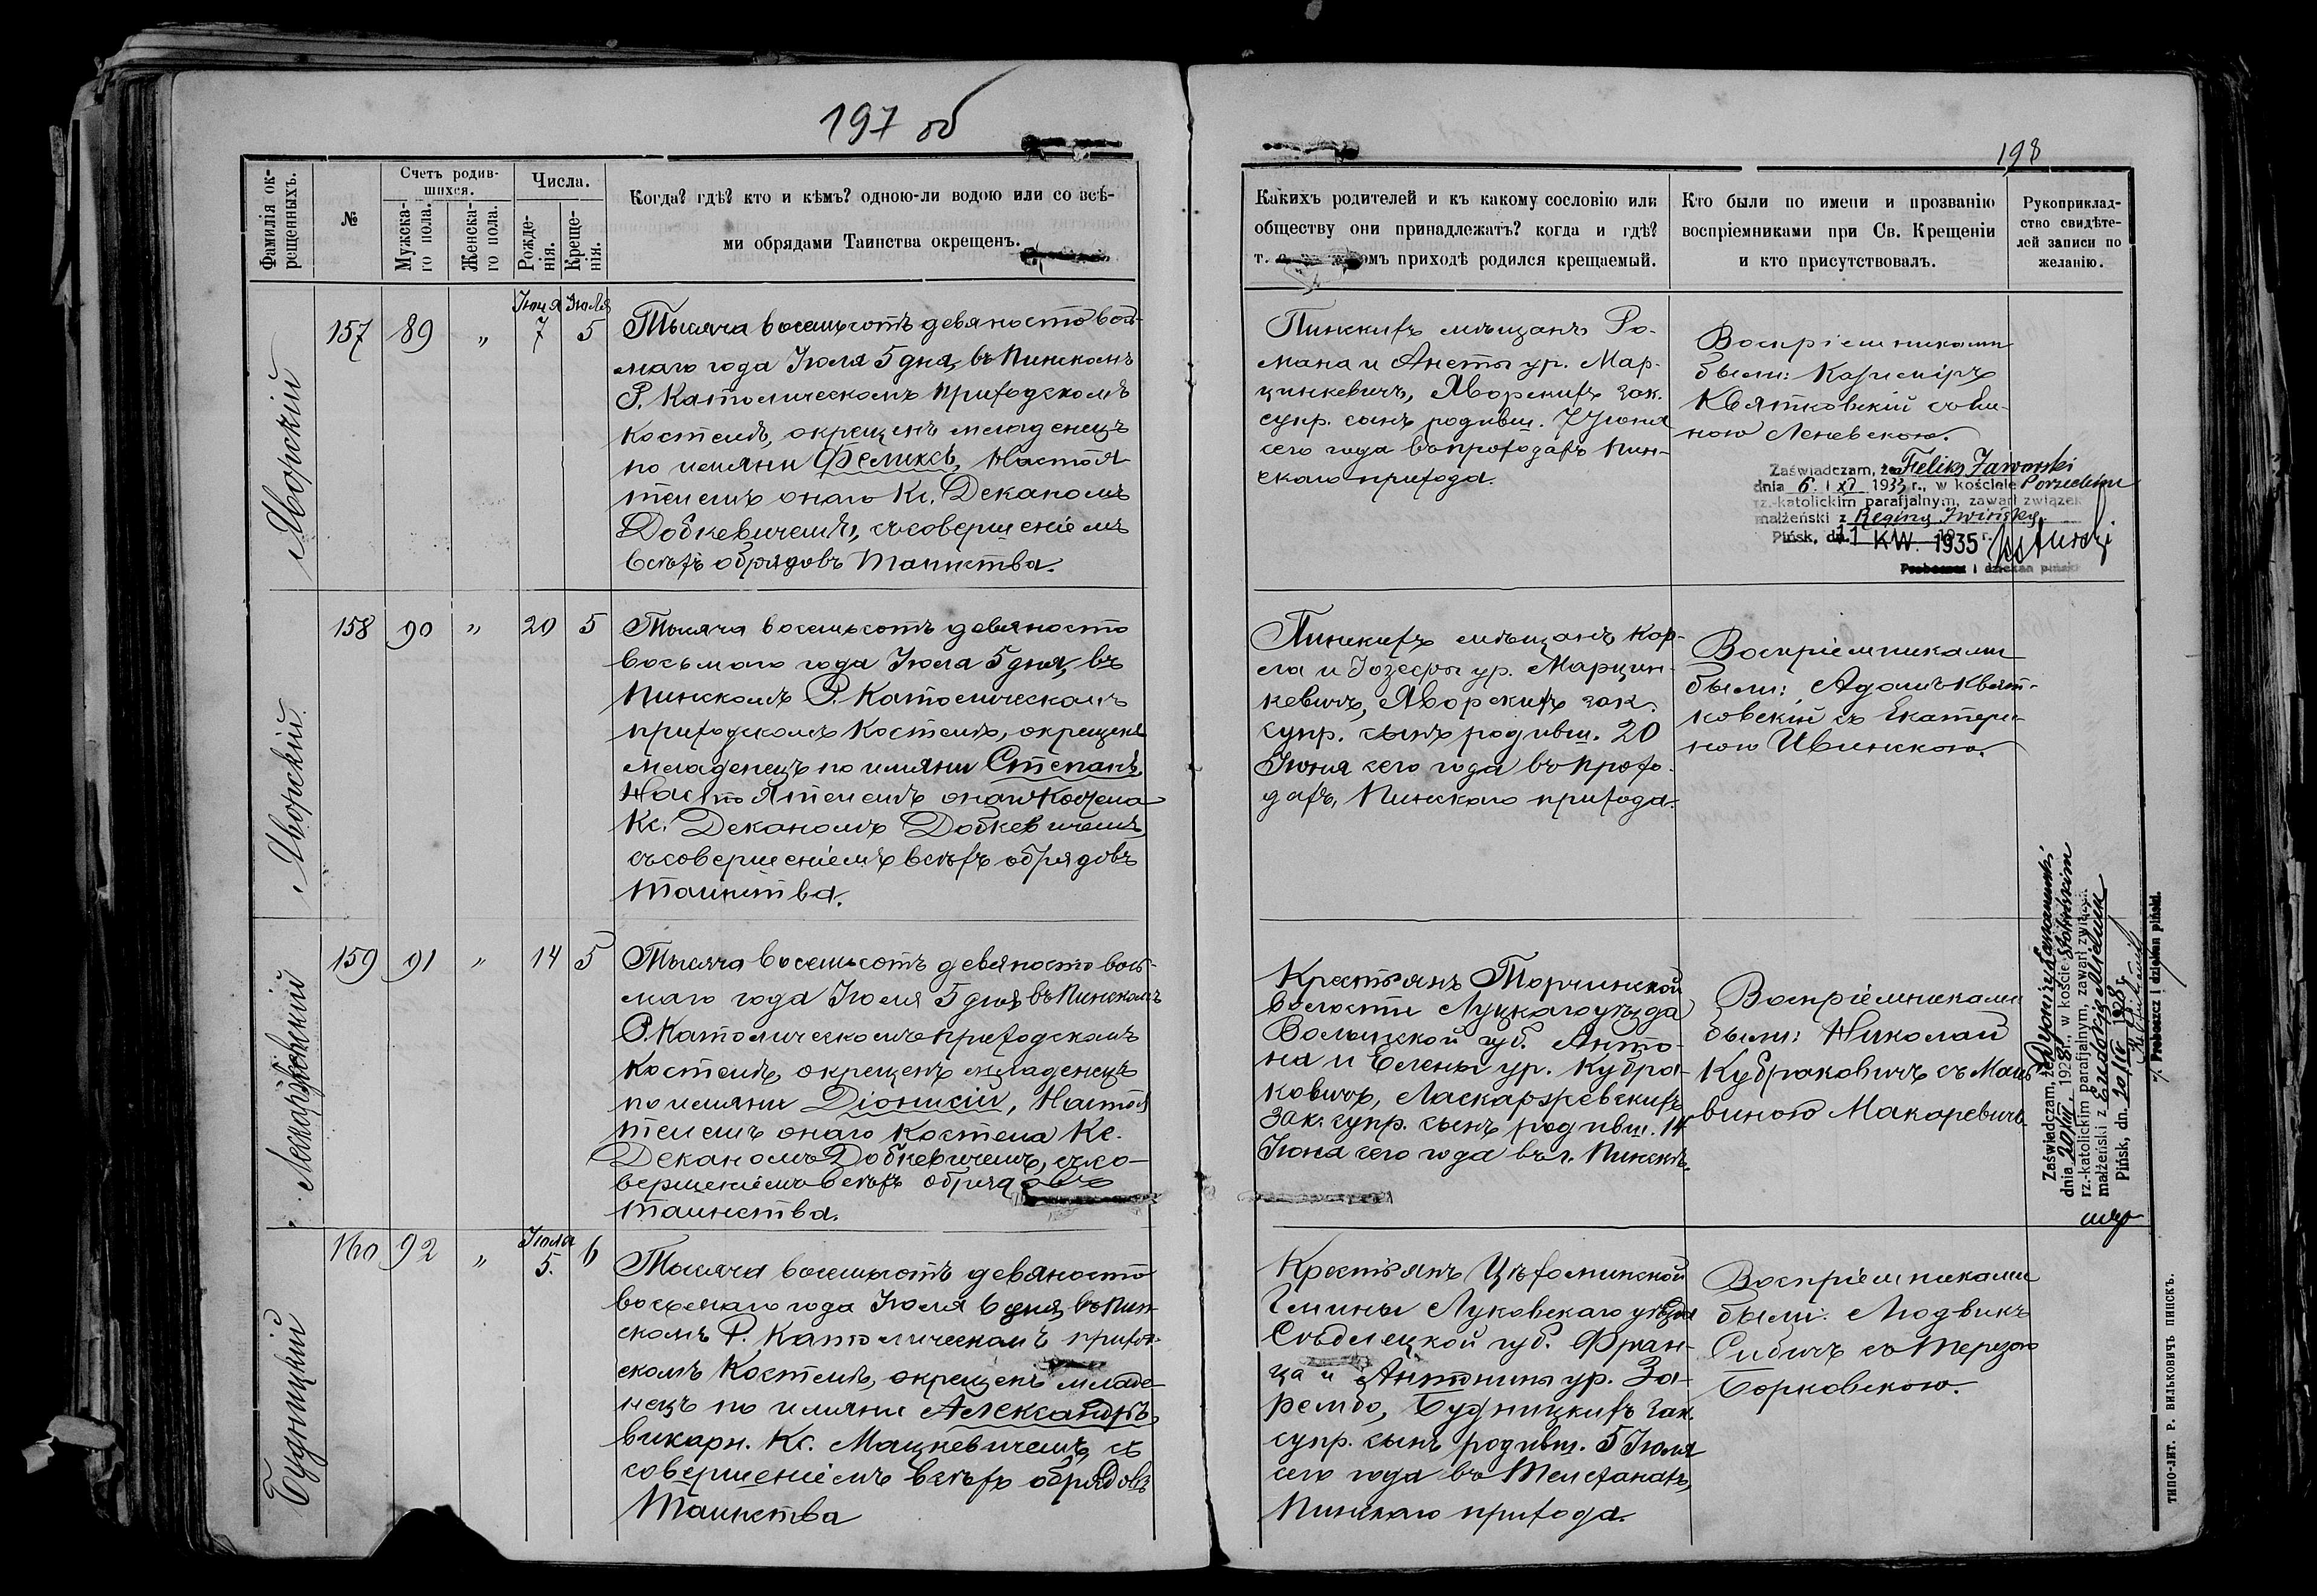 197 об
198
Фамилія ок-
рещенныхъ.
№
Счетъ родив-
шихся.
Мужска-
го пола.
Женска-
го пола.
Числа.
Рожде-
нія.
Креще-
нія.
Когда? гдѣ? кто и кѣмъ? одною-ли водою или со всѣ-
ми обрядами Таинства окрещенъ.
Какихъ родителей и къ какому сословію или
обществу они принадлежатъ? когда и гдѣ?
т. омъ приходѣ родился крещаемый.
Кто были по имени и прозванію
воспріемниками при Св. Крещеніи
и кто присутствовалъ.
Рукоприклад-
ство свидѣте-
лей записи по
желанію.
Яворскій
157 89 „ Іюня 7 Іюля 5
Тысяча восемьсотъ девяносто вось-
маго года Іюля 5 дня, въ Пинскомъ
Р. Католическомъ приходскомъ
костелѣ, окрещенъ младенецъ
по имяни Феликсъ, Настоя
телемъ онаго Кс. Деканомъ
Добкевичемъ, съ совершеніемъ
всѣхъ обрядовъ Таинства.
Пинскихъ мѣщанъ Ро-
мана и Анеты ур. Мар-
цинкевичъ, Яворскихъ зак.
супр. сынъ родивш. 7 Іюня
сего года въ прохода­хъ Пин-
скаго прихода.
Воспріемниками
были: Казиміръ
Квятковскій съ
Леневскою.
Zaświadczam, że Feliks Jaworski
dnia 6. i XI 1933 r., w kościele
rz.-katolickim parafjalnym, zawarł związek
małżeński z Reginą Iwińską.
Pińsk, dn. 11 KW. 1935 r.
Proboszcz i dziekan piński
Яворскій
158 90 „ 20 5
Тысяча восемьсотъ девяносто
восьмаго года Іюля 5 дня, въ
Пинскомъ Р. Католическомъ
приходскомъ костелѣ, окрещенъ
младенецъ по имяни Степанъ,
Настоятелемъ онаго Костела
Кс. Деканомъ Добкевичемъ,
съ совершеніемъ всѣхъ обрядовъ
Таинства.
Пинскихъ мѣщанъ Кар-
ла и Іозефы ур. Марцин-
кевичъ, Яворскихъ зак.
супр. сынъ родивш. 20
Іюня сего года въ прохо-
дахъ, Пинскаго прихода.
Воспріемниками
были: Адамъ Квят-
ковскій съ Екатери-
ною Ивинскою.
159 91 „ 14 5
Тысяча восемьсотъ девяносто вось-
маго года Іюля 5 дня въ Пинскомъ
Р. Католическомъ приходскомъ
костелѣ, окрещенъ младенецъ
по имяни Діонисій, Настоя
телемъ онаго Костела Кс.
Деканомъ Добкевичемъ, съ со-
вершеніемъ всѣхъ обрядовъ
таинства.
Крестьянъ Торчинской
волости Луцкаго уѣзда
Волынской губ. Анто-
на и Елены ур. Кубра-
ковичъ, Ласкаржевскихъ
зак. супр. сынъ родивш. 14
Іюня сего года въ г. Пинскѣ.
Воспріемниками
были: Николай
Кубраковичъ съ Маль-
виною Макаревичъ.
Zaświadczam, że
dnia 1928 r., w kościele
rz.-katolickim parafjalnym, zawarł związek
małżeński z Eudoksją
Pińsk, dn. 1928 r.
Proboszcz i dziekan piński.
Будницкій
160 92 „ Іюля 5. 6
Тысяча восемьсотъ девяносто
восьмаго года Іюля 6 дня, въ Пин-
скомъ Р. Католическомъ приход-
скомъ Костелѣ, окрещенъ младе-
нецъ по имяни Александръ,
викарн. Кс. Мацкевичемъ, съ
совершеніемъ всѣхъ обрядовъ
Таинства
Крестьянъ
Гмины Луковскаго уѣзда
Сѣдлецкой губ. Фран-
ца и Антонины ур. За-
рембо, Будницкихъ зак.
супр. сынъ родивш. 5 Іюля
сего года въ Телеханахъ,
Пинскаго прихода.
Воспріемниками
были: Людвикъ
Сибичъ съ Терезою
Борковскою.
ТИПО-ЛИТ. Р. ВИЛЬКОВИЧЪ ПИНСКЪ.